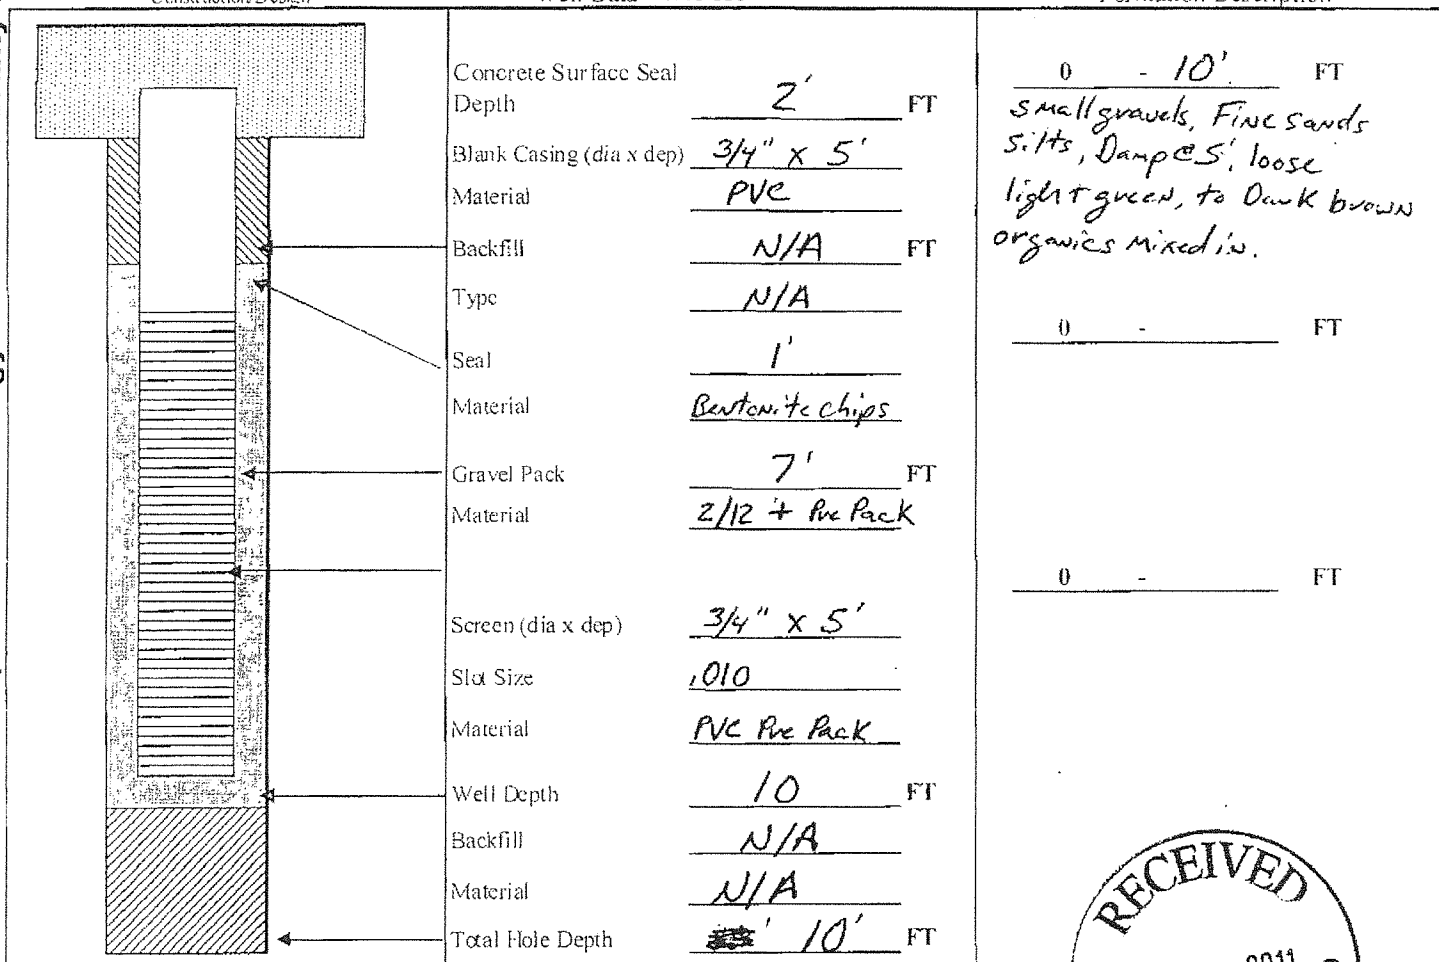 Construction Design
Formation Description
Concrete Surface Seal
Depth 2' FT
Blank Casing (dia x dep) 3/4" x 5'
Material PVC
Backfill N/A FT
Type N/A
Seal 1'
Material Bentonite chips
Gravel Pack 7' FT
Material 2/12 + Pre Pack
Screen (dia x dep) 3/4" x 5'
Slot Size .010
Material PVC Pre Pack
Well Depth 10 FT
Backfill N/A
Material N/A
Total Hole Depth ' 10' FT
0 - 10' FT
small gravels, Fine sands
silts, Damp @ 5', loose
light green, to Dark brown
organics mixed in.
0 - FT
0 - FT
RECEIVED
2011